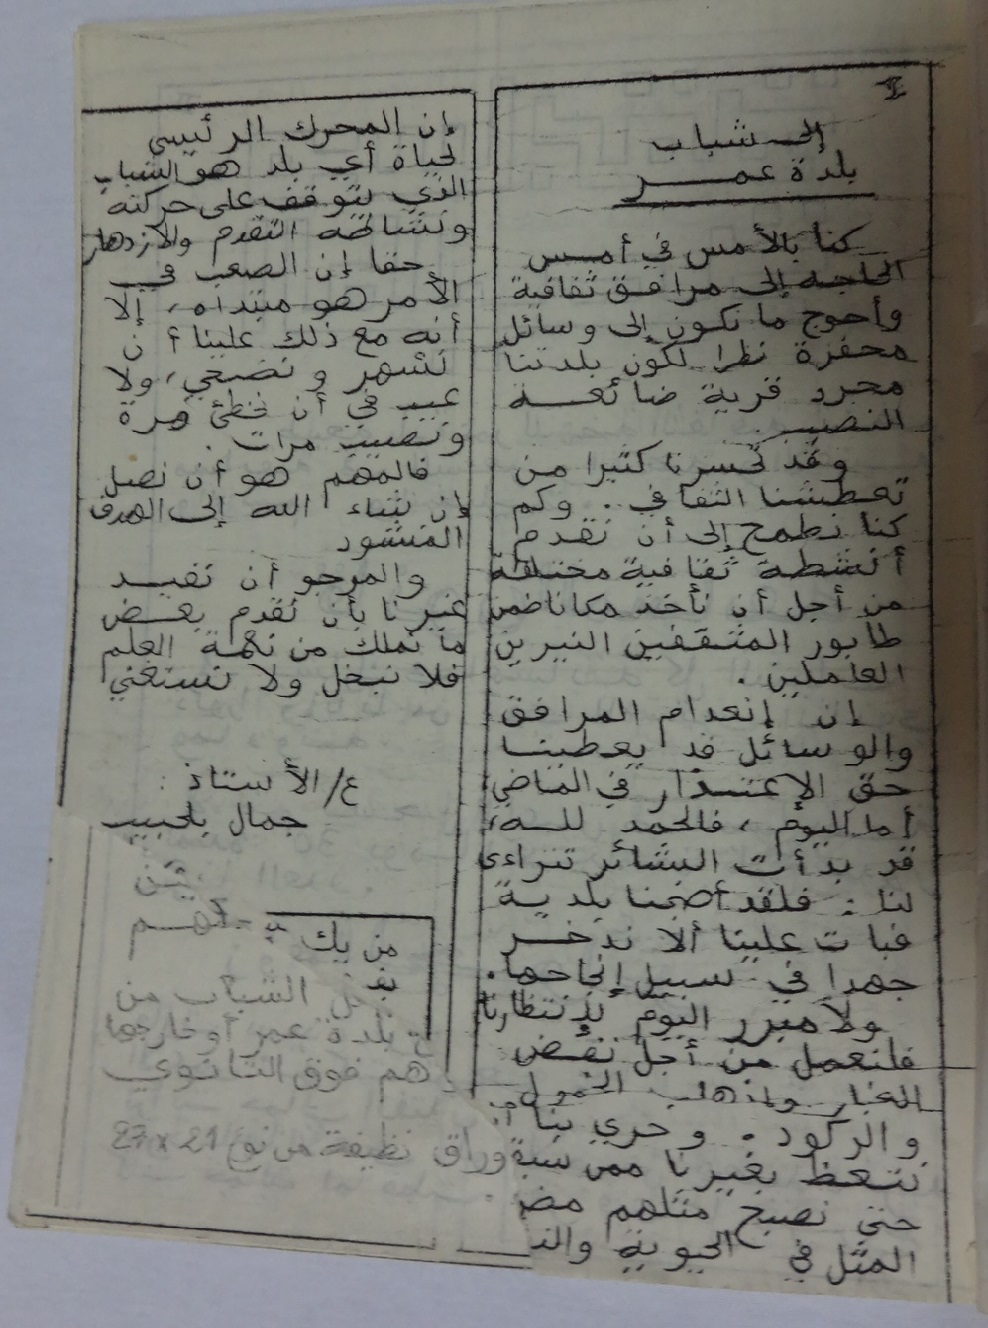 1
إلى شباب
بلدة عمر
كنا بالأمس في أمس
الحاجة إلى مرافق ثقافية
وأحوج ما نكون إلى وسائل
محفزة نظرا لكون بلدتنا
مجرد قرية ضائعة
النصيب.
وقد تحسرنا كثيرا من
تعطشنا الثقافي. وكم
كنا نطمح إلى أن نقدم
أنشطة ثقافية مختلفة
من أجل أن نأخذ مكانا ضمن
طابور المثقفين النيرين
العاملين.
إن إنعدام المرافق
والوسائل قد يعطينا
حق الإعتذار في الماضي
أما اليوم، فالحمد لله،
قد بدأت البشائر تتراءى
لنا: فلقد أضحينا بلدية
فبات علينا ألا ندخر
جهدا في سبيل إنجاحها.
ولا مبرر اليوم لإنتظارنا
فلنعمل من أجل نفض
الغبار وإذهاب الخمول
والركود. وحري بنا أن
نتعظ بغيرنا ممن سبق
حتى نصبح مثلهم مضـ
المثل في الحيوية والنـ
إن المحرك الرئيسي
لحياة أي بلد هو الشباب
الذي يتوقف على حركته
ونشاطه التقدم والازدهار
حقا إن الصعب في
الأمر هو مبتداه، إلا
أنه مع ذلك علينا أن
نسهر ونضحي، ولا
عيب في أن نخطئ مرة
ونصيب مرات.
فالمهم هو أن نصل
إن شاء الله إلى الهدف
المنشود
والمرجو أن نفيد
غيرنا بأن نقدم بعض
ما نملك من نعمة العلم
فلا نبخل ولا نستغني
ع/الأستاذ:
جمال بلحبيب
من يك
الشباب من
بلدة عمر أو خارجها
هم فوق الثانوي
وراق نظيفة من نوع 21×27